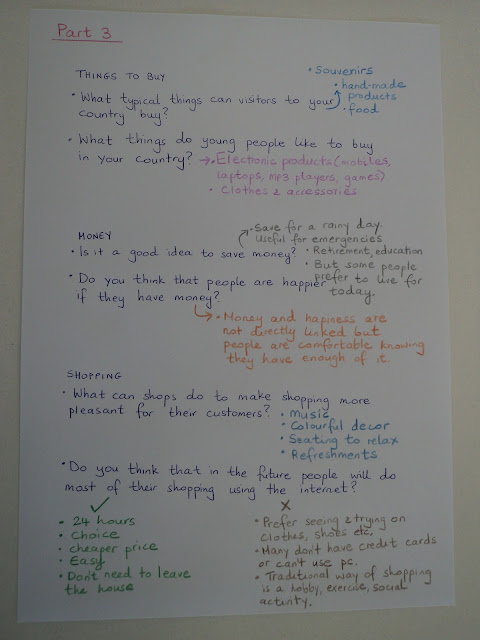 Part 3
THINGS TO BUY
• Souvenirs
• hand-made
products
• food
• What typical things can visitors to your
country buy?
• What things do young people like to buy
in your country?
• Electronic products (mobiles,
laptops, mp3 players, games)
• Clothes & accessories
MONEY
• Save for a rainy day.
Useful for emergencies
• Retirement, education
• But some people
prefer to live for
today.
• Is it a good idea to save money?
• Do you think that people are happier
if they have money?
• Money and hapiness are
not directly linked but
people are comfortable knowing
they have enough of it.
SHOPPING
• What can shops do to make shopping more
pleasant for their customers?
• Music
• Colourful decor
• Seating to relax
• Refreshments
• Do you think that in the future people will do
most of their shopping using the internet?
✓
• 24 hours
• Choice
• cheaper price
• Easy
• Don't need to leave
the house
X
• Prefer seeing & trying on
clothes, shoes etc.
• Many don't have credit cards
or can't use pc.
• Traditional way of shopping
is a hobby, exercise, social
activity.